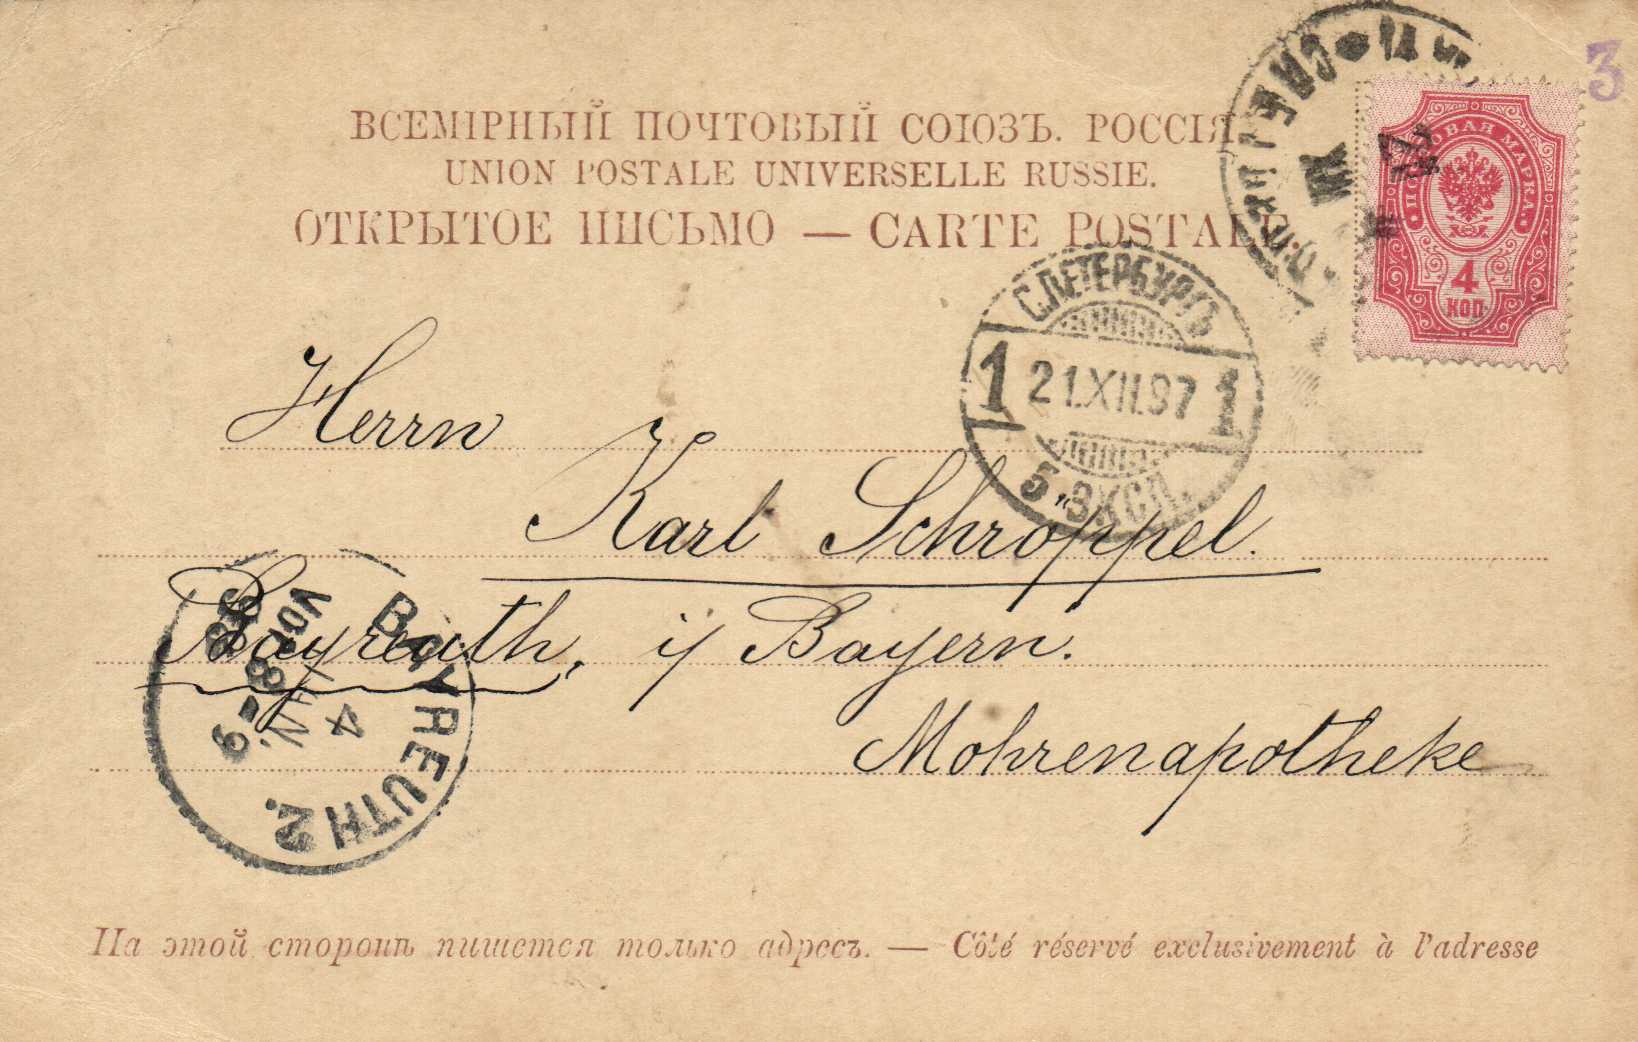 ВСЕМІРНЫЙ ПОЧТОВЫЙ СОЮЗЪ. РОССІЯ
UNION POSTALE UNIVERSELLE RUSSIE.
ОТКРЫТОЕ ПИСЬМО — CARTE POSTALE.
3
ПОЧТОВАЯ МАРКА.
4
КОП.
С.ПЕТЕРБУРГЪ
1 21.XII.97 1
5 ЭКСП.
Herrn
Karl Schröppel.
Bayreuth, i/ Bayern.
Mohrenapotheke
BAYREUTH 2.
4 JAN.
VOR. 8-9
98
На этой сторонѣ пишется только адресъ. — Côté réservé exclusivement à l'adresse